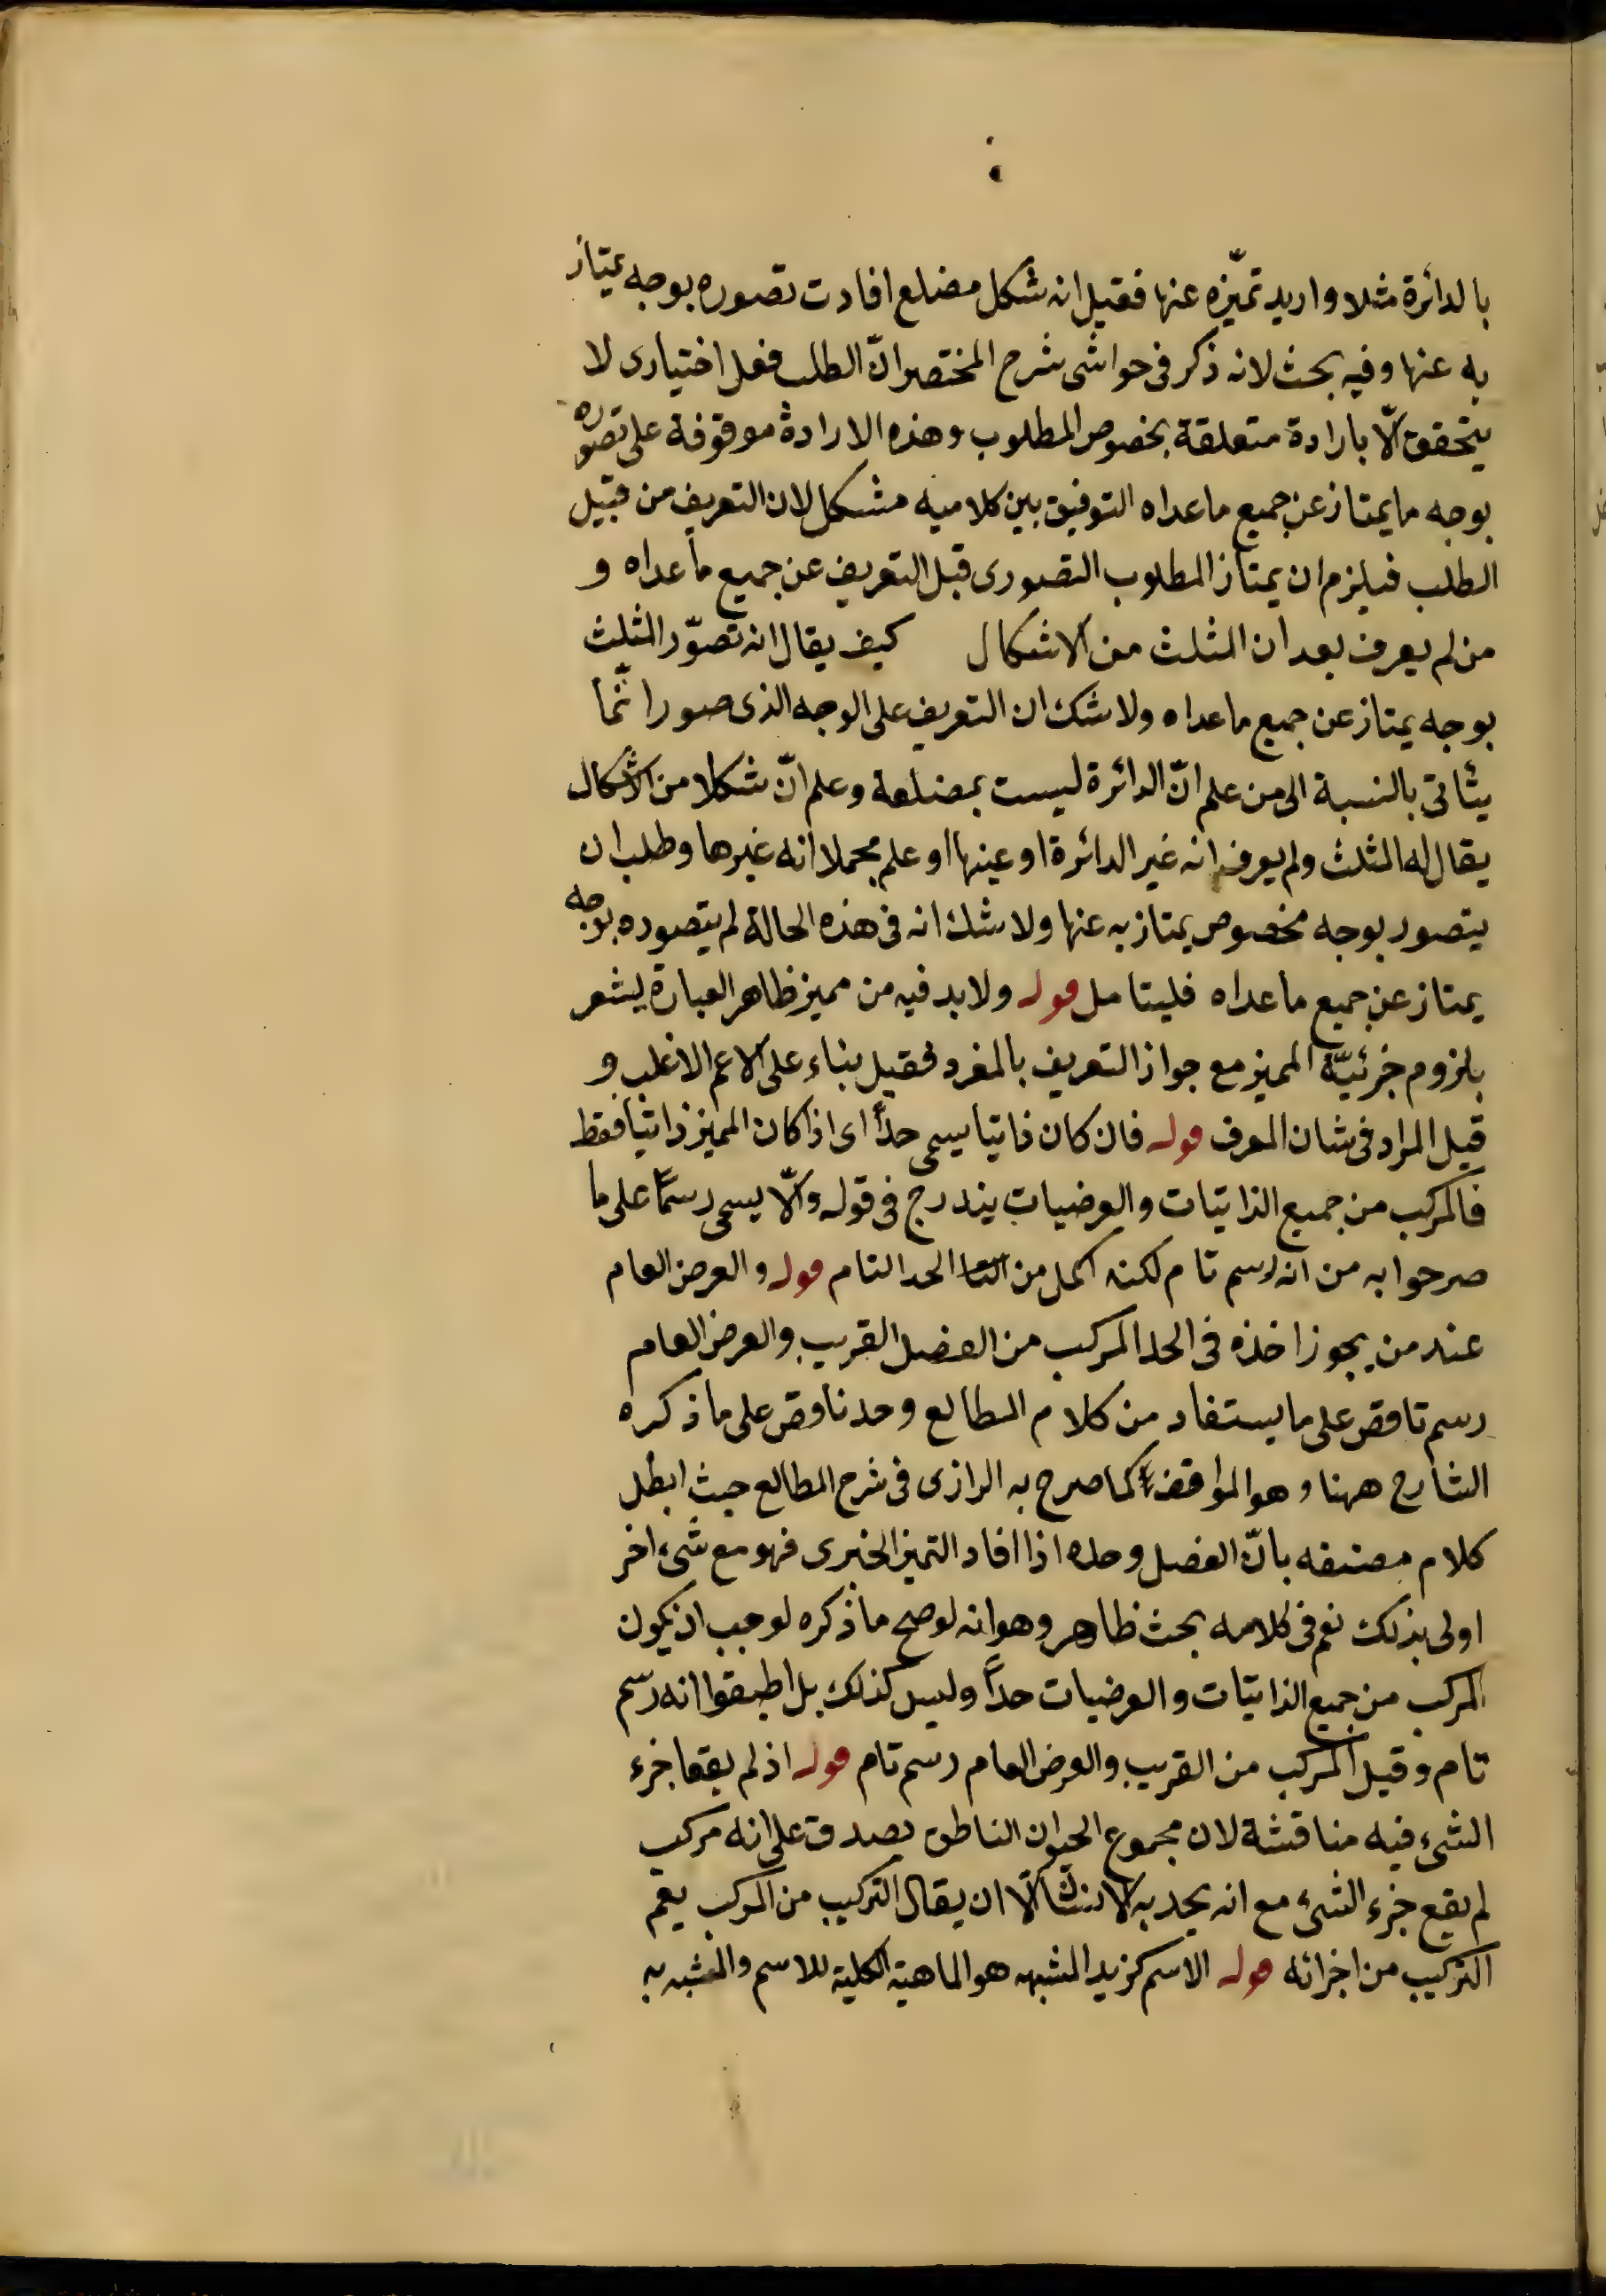 بالدائرة مثلا واريد تميّزه عنها فقيل انه شكل مضلع افادت تصوره بوجه يمتاز
به عنها وفيه بحث لانه ذكر فى حواشى شرح المختصر انّ الطلب فعل اختيارى لا
يتحقق الّا بارادة متعلقة بخصوص المطلوب وهذه الارادة موقوفة على تصوره
بوجه ما يمتاز عن جميع ما عداه التوفيق بين كلاميه مشكل لان التعريف من قبيل
الطلب فيلزم ان يمتاز المطلوب التصورى قبل التعريف عن جميع ما عداه و
من لم يعرف بعد ان المثلث من الاشكال كيف يقال انه تصوّر المثلث
بوجه يمتاز عن جميع ما عداه ولا شك ان التعريف على الوجه الذى صور انّما
يتأتى بالنسبة الى من علم انّ الدائرة ليست بمضلعة وعلم انّ شكلا من الاشكال
يقال له المثلث ولم يعرف انه غير الدائرة او عينها او علم مجملا انه غيرها وطلب ان
يتصور بوجه مخصوص يمتاز به عنها ولا شك انه فى هذه الحالة لم يتصوره بوجه
يمتاز عن جميع ما عداه فليتامل قوله ولابد فيه من مميز ظاهر العبارة يشعر
بلزوم جزئيّة المميز مع جواز التعريف بالمفرد فقيل بناء على الاعم الاغلب و
قيل المراد فى شان المعرف قوله فان كان ذاتيا يسمى حدّا اى اذا كان المميز ذاتيا فقط
فالمركب من جميع الذاتيّات والعرضيات يندرج فى قوله والّا يسمى رسمًا على ما
صرحوا به من انه رسم تام لكنه اكمل من الحد التام قوله والعرض العام
عند من يجوز اخذه فى الحد المركب من الفصل القريب والعرض العام
رسم ناقص على ما يستفاد من كلام المطالع وحد ناقص على ما ذكره
الشارح ههنا وهو الموافق كما صرح به الرازى فى شرح المطالع حيث ابطل
كلام مصنفه بانّ الفصل وحده اذا افاد التميز الحدى فهو مع شىء اخر
اولى بذلك نعم فى كلامه بحث ظاهر وهو انه لو صح ما ذكره لوجب ان يكون
المركب من جميع الذاتيّات والعرضيات حدًّا وليس كذلك بل اطبقوا انه رسم
تام وقيل المركب من القريب والعرض العام رسم تام قوله اذ لم يقعا جزء
الشىء فيه مناقشة لان مجموع الحيوان الناطق يصدق على انه مركب
لم يقع جزء الشىء مع انه يحد به الانسان الّا ان يقال التركيب من المركب يعم
التركيب من اجزائه قوله الاسم كزيد المشبه هو الماهية الكلية للاسم والمشبه به